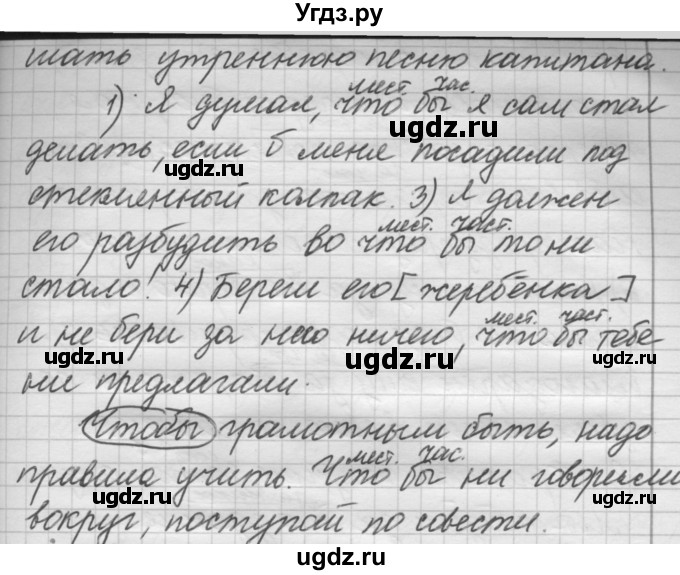 Угдз.ру
шать утреннюю песню капитана.
мест. час.
1) Я думал, что бы я сам стал
делать, если б меня посадили под
стеклянный колпак. 3) Я должен
мест. част.
его разбудить во что бы то ни
стало! 4) Береги его [жеребёнка]
мест. част.
и не бери за него ничего, что бы тебе
ни предлагали.
Чтобы грамотным быть, надо
мест. час.
правила учить. Что бы ни говорили
вокруг, поступай по совести.
ugdz.ru
ugdz.ru
ugdz.ru
ugdz.ru
ugdz.ru
ugdz.ru
ugdz.ru
ugdz.ru
ugdz.ru
ugdz.ru
ugdz.ru
ugdz.ru
ugdz.ru